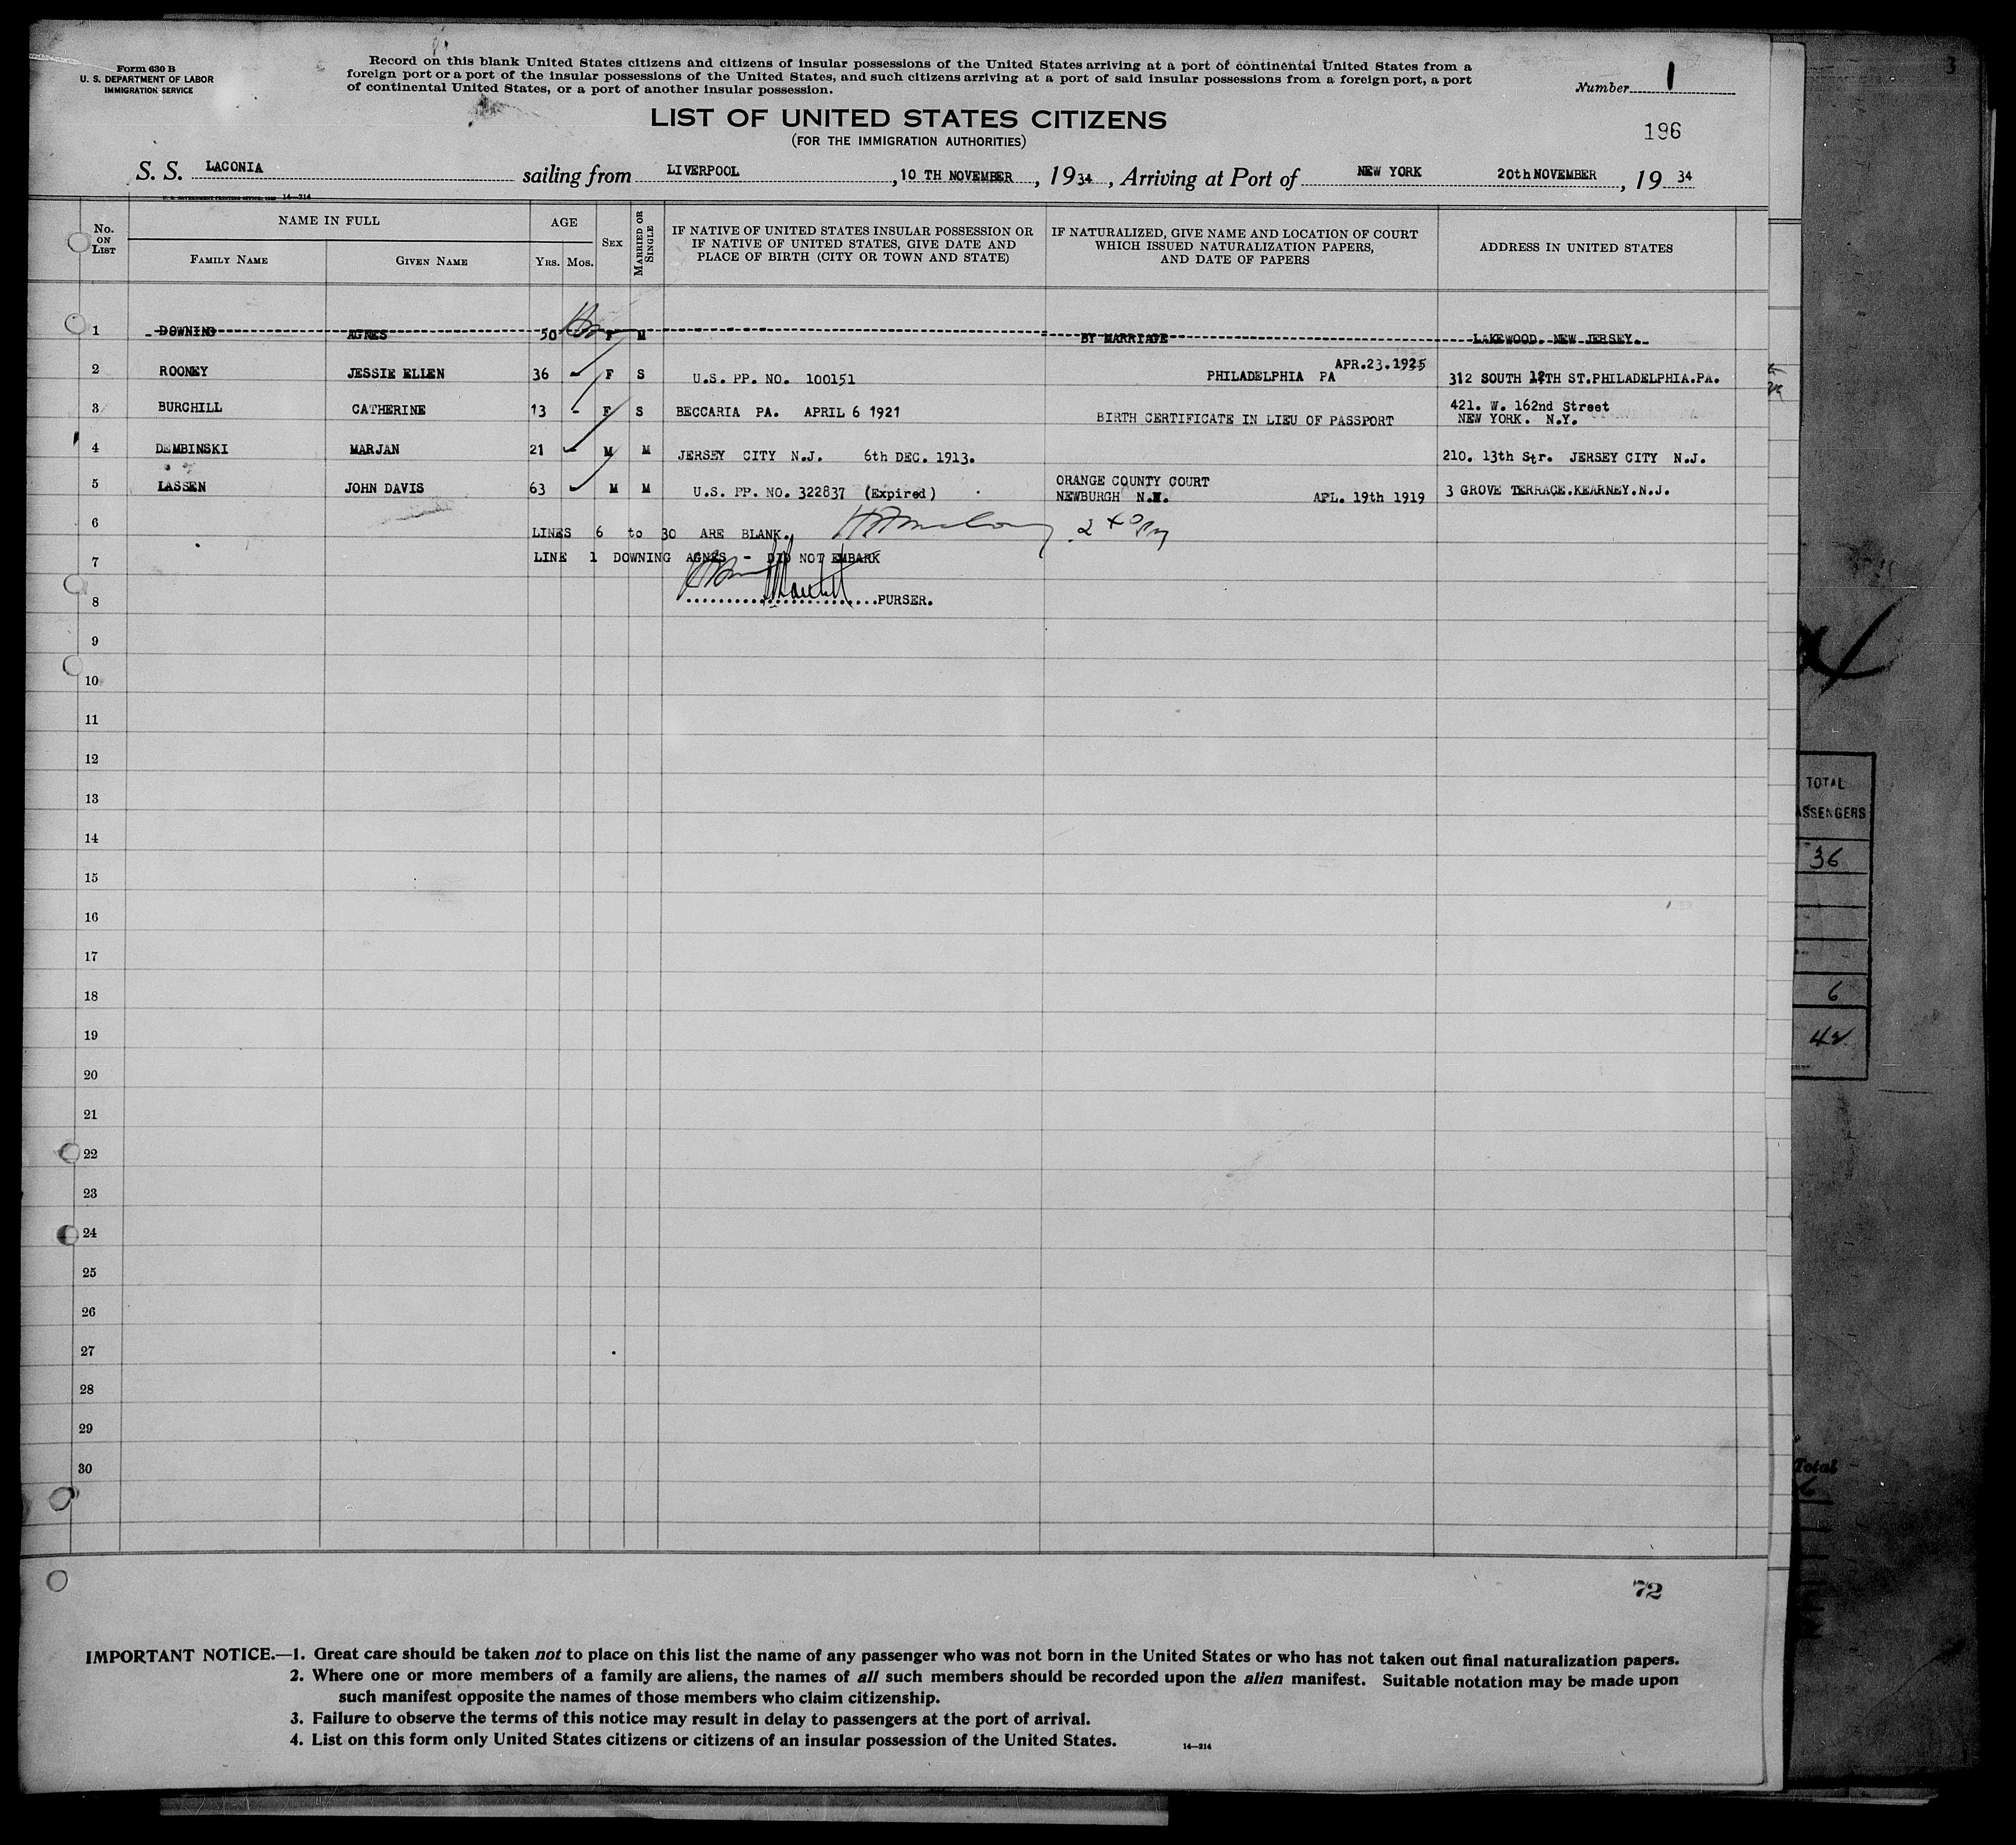 Form 630 B
U. S. DEPARTMENT OF LABOR
IMMIGRATION SERVICE
Record on this blank United States citizens and citizens of insular possessions of the United States arriving at a port of continental United States from a
foreign port or a port of the insular possessions of the United States, and such citizens arriving at a port of said insular possessions from a foreign port, a port
of continental United States, or a port of another insular possession.
Number 1
LIST OF UNITED STATES CITIZENS
(FOR THE IMMIGRATION AUTHORITIES)
196
S. S. LACONIA sailing from LIVERPOOL, 10 TH NOVEMBER, 1934, Arriving at Port of NEW YORK 20th NOVEMBER, 19 34
14—214
No. ON LIST
NAME IN FULL
FAMILY NAME
GIVEN NAME
AGE
YRS. MOS.
SEX
MARRIED OR SINGLE
IF NATIVE OF UNITED STATES INSULAR POSSESSION OR
IF NATIVE OF UNITED STATES, GIVE DATE AND
PLACE OF BIRTH (CITY OR TOWN AND STATE)
IF NATURALIZED, GIVE NAME AND LOCATION OF COURT
WHICH ISSUED NATURALIZATION PAPERS,
AND DATE OF PAPERS
ADDRESS IN UNITED STATES
1 DOWNING AGNES 50 F M BY MARRIAGE LAKEWOOD. NEW JERSEY.
2 ROONEY JESSIE ELLEN 36 F S U.S. PP. NO. 100151 PHILADELPHIA PA APR.23.1925 312 SOUTH 12TH ST.PHILADELPHIA.PA.
3 BURCHILL CATHERINE 13 F S BECCARIA PA. APRIL 6 1921 BIRTH CERTIFICATE IN LIEU OF PASSPORT 421. W. 162nd Street
NEW YORK. N.Y.
4 DEMBINSKI MARJAN 21 M M JERSEY CITY N.J. 6th DEC. 1913. 210. 13th Str. JERSEY CITY N.J.
5 LASSEN JOHN DAVIS 63 M M U.S. PP. NO. 322837 (Expired) ORANGE COUNTY COURT
NEWBURGH APL. 19th 1919 3 GROVE TERRACE.KEARNEY.N.J.
6 LINES 6 to 30 ARE BLANK. 2 40 Pm
7 LINE 1 DOWNING AGNES - DID NOT EMBARK
8 PURSER.
9
10
11
12
13
14
15
16
17
18
19
20
21
22
23
24
25
26
27
28
29
30
TOTAL
36
6
42
Total
72
IMPORTANT NOTICE.—1. Great care should be taken not to place on this list the name of any passenger who was not born in the United States or who has not taken out final naturalization papers.
2. Where one or more members of a family are aliens, the names of all such members should be recorded upon the alien manifest. Suitable notation may be made upon
such manifest opposite the names of those members who claim citizenship.
3. Failure to observe the terms of this notice may result in delay to passengers at the port of arrival.
4. List on this form only United States citizens or citizens of an insular possession of the United States.
14—214